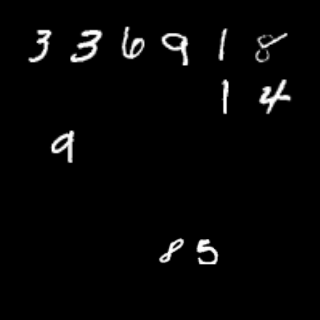 3 3 6 9 1 8
1 4
9
8 5